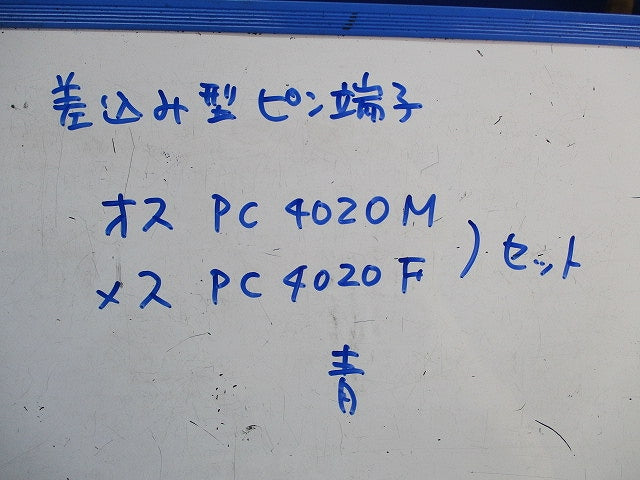 差込み型ピン端子
オス PC4020M
メス PC4020F ) セット
青